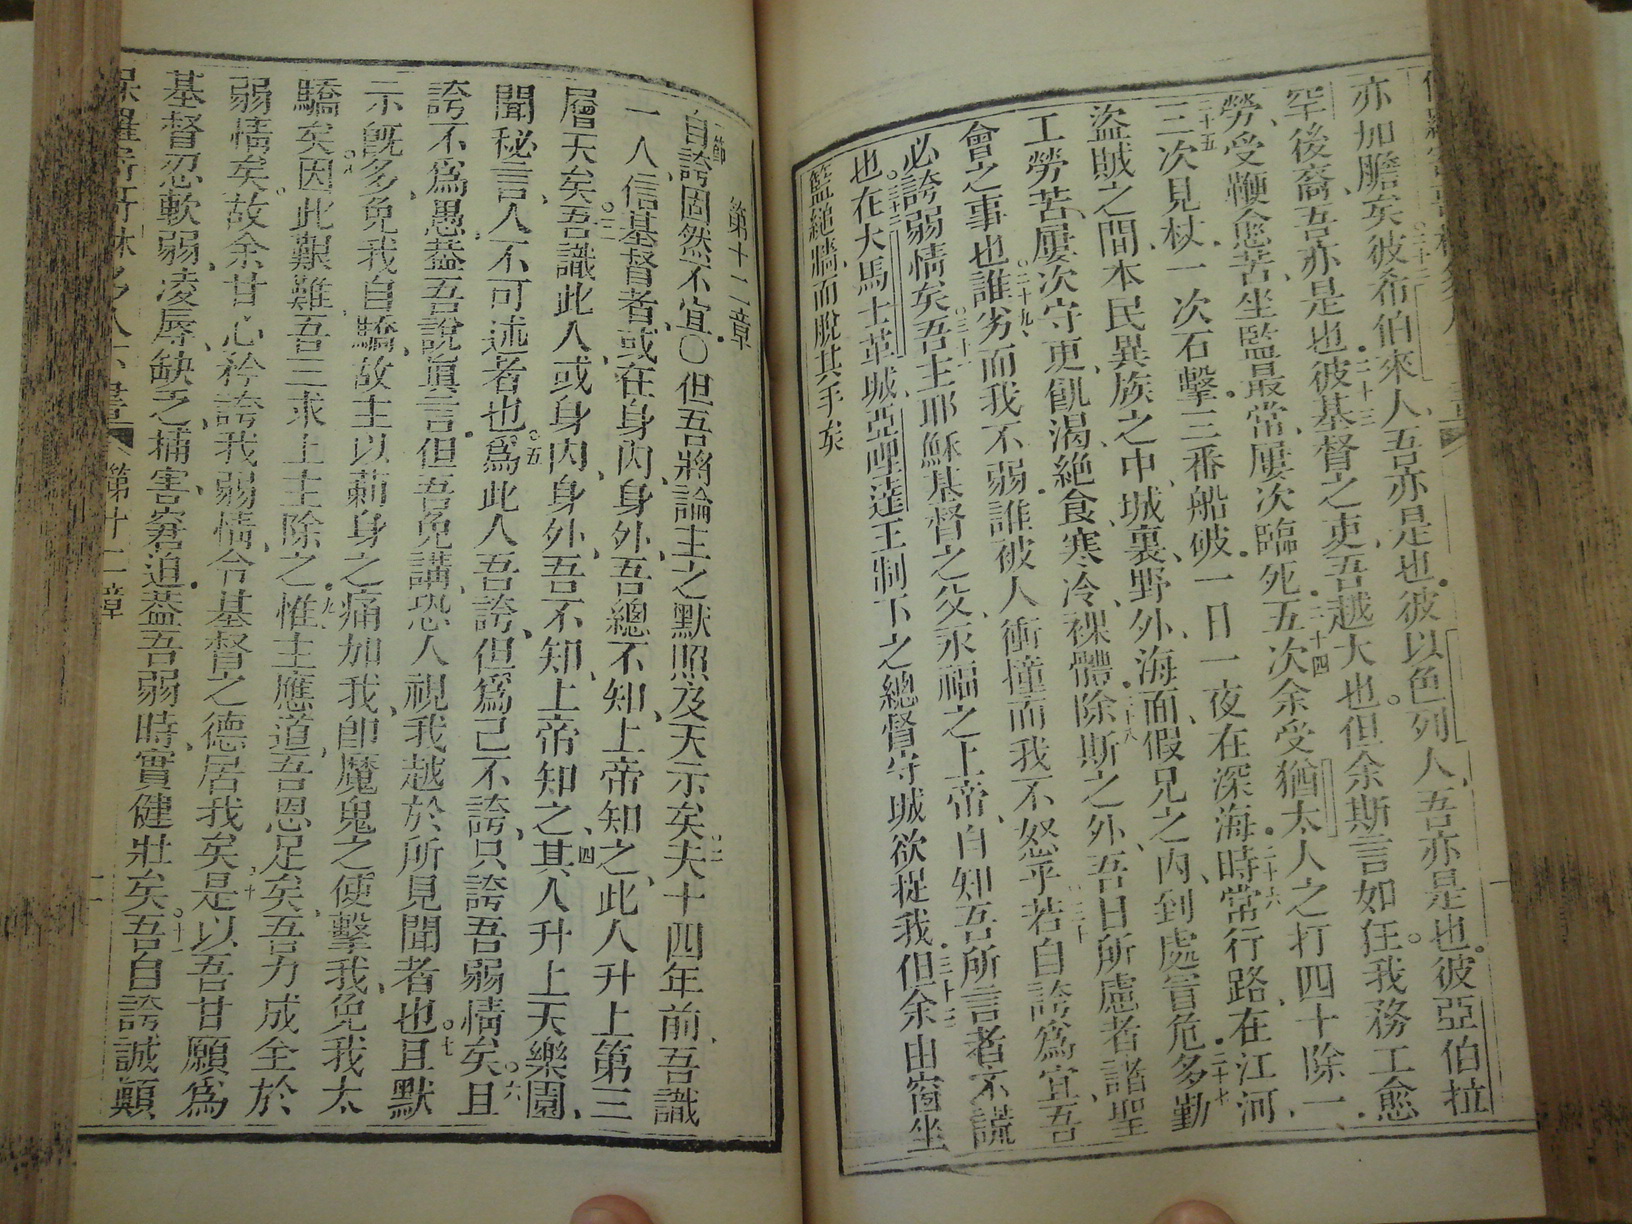 亦加膽矣彼希伯來人吾亦是也彼以色列人吾亦是也彼亞伯拉
罕後裔吾亦是也彼基督之吏吾越大也但余斯言如狂我務工愈
勞受鞭愈苦坐監最常屢次臨死五次余受猶太人之打四十除一
三次見杖一次石擊三番船破一日一夜在深海時常行路在江河
盜賊之間本民異族之中城裏野外海面假兄之內到處冒危多勤
工勞苦屢次守更飢渴絕食寒冷裸體除斯之外吾日所慮者諸聖
會之事也誰劣而我不弱誰被人衝撞而我不怒乎若自誇為宜吾
必誇弱情矣吾主耶穌基督之父永福之上帝自知吾所言者不謊
也在大馬士革城亞哩達王制下之總督守城欲捉我但余由窗坐
籃縋牆而脫其手矣
第十二章
一節 自誇固然不宜○但吾將論主之默照及天示矣夫十四年前吾識
一人信基督者或在身內身外吾總不知上帝知之此人升上第三
層天矣吾識此人或身內身外吾不知上帝知之其人升上天樂園
聞秘言人不可述者也為此人吾誇但為己不誇只誇吾弱情矣且
誇不為愚蓋吾說眞言但吾免講恐人視我越於所見聞者也且默
示既多免我自驕故主以莿身之痛加我即魔鬼之使擊我免我太
驕矣因此艱難吾三求上主除之惟主應道吾恩足矣吾力成全於
弱情矣故余甘心矜誇我弱情令基督之德居我矣是以吾甘願為
基督忍軟弱凌辱缺乏捕害窘迫蓋吾弱時實健壯矣吾自誇誠顛
第十二章